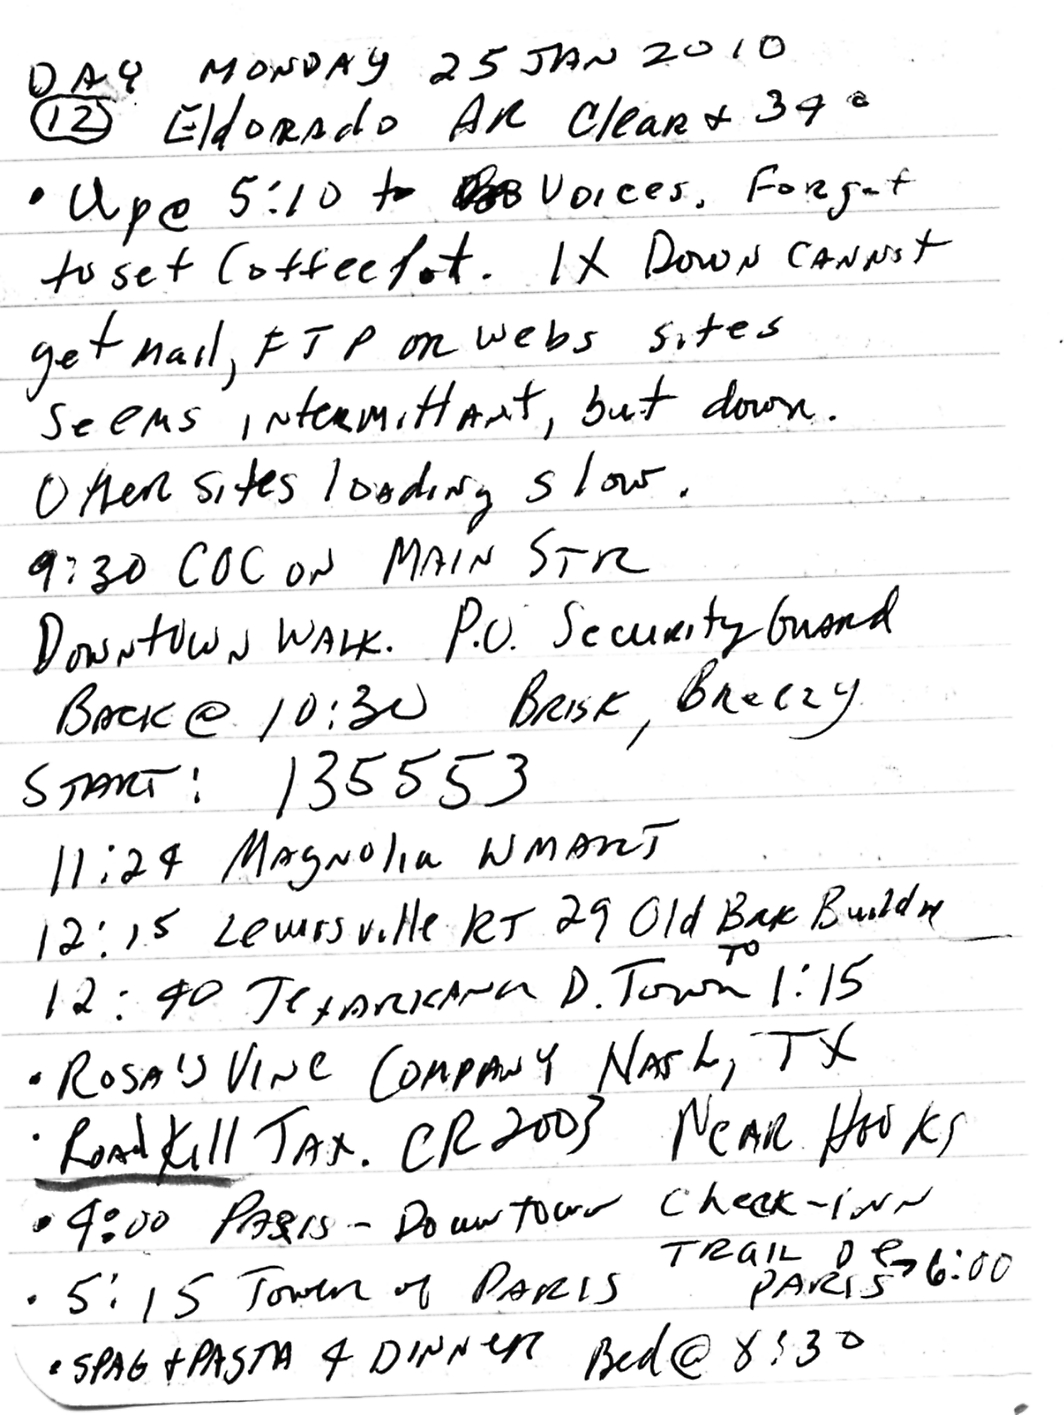 DAY MONDAY 25 JAN 2010
12 ElDORADO AR Clear + 34°
• Up@ 5:10 to Voices. Forgot
to set Coffee Pot. 1X DOWN CANNOT
get mail, FTP or webs sites
Seems INtermittANt, but down.
Other sites loading slow.
9:30 COC ON MAIN STR
DOWNTOWN WALK. P.O. Security Guard
BACK@ 10:30 BRISK, Breezy
START: 135553
11:24 MAgNolia WMART
12:15 Lewisville RT 29 Old Bank Building
12:40 TexARKANA D.Town TO 1:15
• ROSA'S VINE COMPANY NASh, TX
• Road Kill TAX. CR2003 NEAR HOOKS
• 4:00 PARIS - Downtown Check-inn
• 5:15 Tower of PARIS TRAIL DE PARIS → 6:00
• SPAG + PASTA 4 DINNER Bed@ 8:30